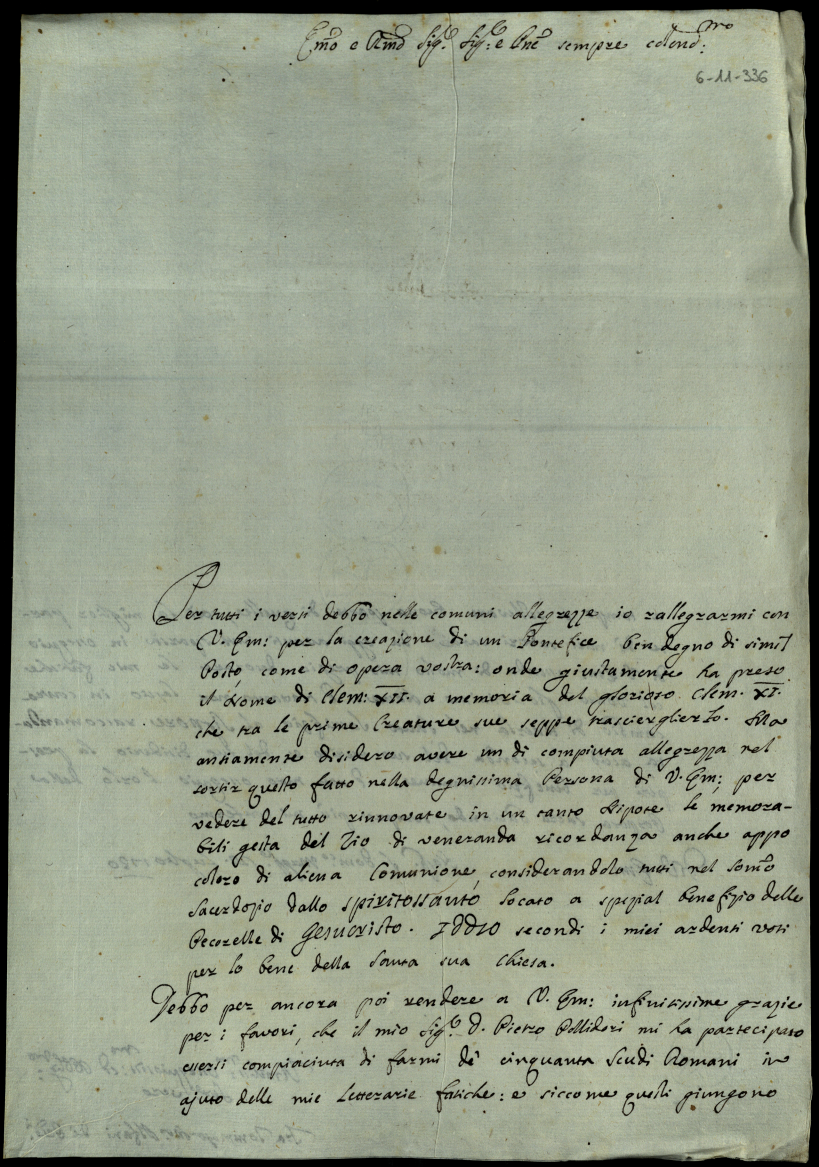 Emo e Rmo Sig.r Sig.r e Pne sempre colend:mo
6-11-336
Per tutti i versi debbo nelle comuni allegrezze io rallegrarmi con
V. Em: per la creazione di un Pontefice ben degno di simil
Posto, come di opera vostra: onde giustamente ha preso
il Nome di Clem: XII. a memoria del glorioso Clem. XI.
che tra le prime Creature sue seppe trasciergliero. Ma
ansiamente disidero avere un di compiuta allegrezza nel
sortir questo fatto nella degnissima Persona di V. Em: per
vedere del tutto rinnovate in un tanto Nipote le memora-
bili gesta del Zio di veneranda ricordanza anche appo
coloro di aliena Comunione, considerandolo tutti nel somo
Sacerdozio dallo SPIRITOSSANTO locato a spezial benefizio delle
Pecorelle di GESUCRISTO. IDDIO secondi i miei ardenti voti
per lo bene della Santa sua Chiesa.
Debbo per ancora poi rendere a V. Em: infinitissime grazie
per i favori, che il mio Sig.r D. Pietro Pollidori mi ha partecipato
essersi compiaciuta di farmi de' cinquanta Scudi Romani in
ajuto delle mie letterarie fatiche: e siccome questi giungono